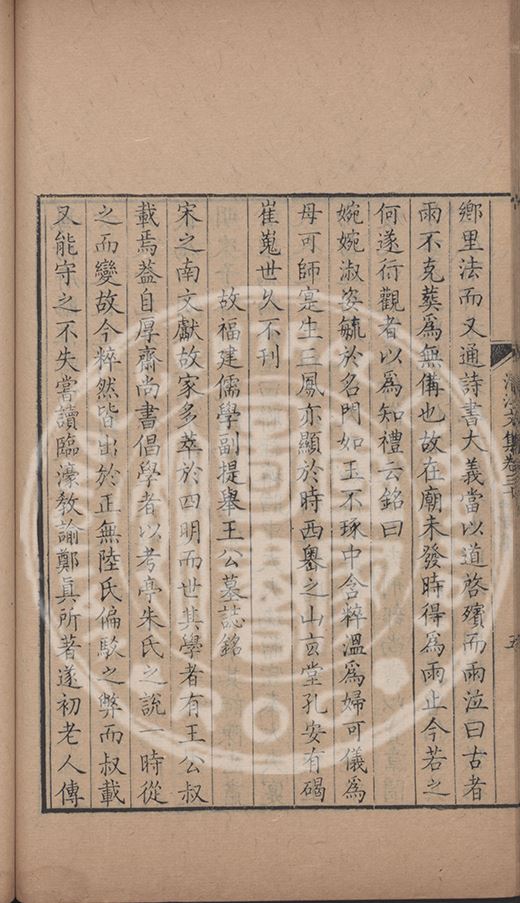 鄉里法而又通詩書大義當以道啓殯而雨泣曰古者
雨不克葬為無備也故在廟未發時得為雨止今若之
何遂行觀者以為知禮云銘曰
婉婉淑姿毓於名門如玉不琢中含粹溫為婦可儀為
母可師寔生三鳳亦顯於時西嶴之山玄堂孔安有碣
崔嵬世久不刊
故福建儒學副提舉王公墓誌銘
宋之南文獻故家多萃於四明而世其學者有王公叔
載焉蓋自厚齋尚書倡學者以考亭朱氏之說一時從
之而變故今粹然皆出於正無陸氏偏駁之弊而叔載
又能守之不失嘗讀臨濠教諭鄭真所著遂初老人傳